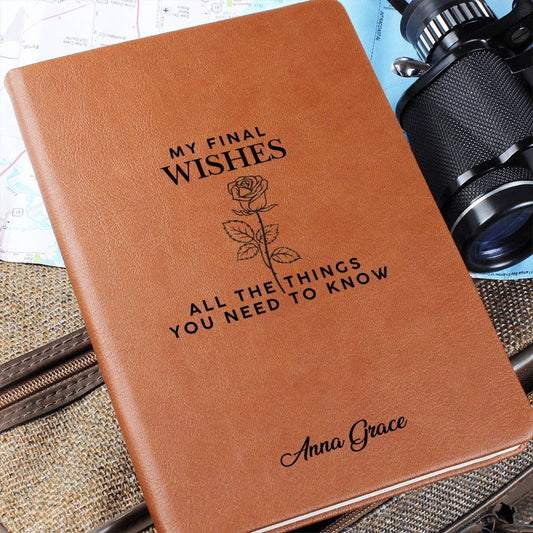 MY FINAL
WISHES
ALL THE THINGS
YOU NEED TO KNOW
Anna Grace